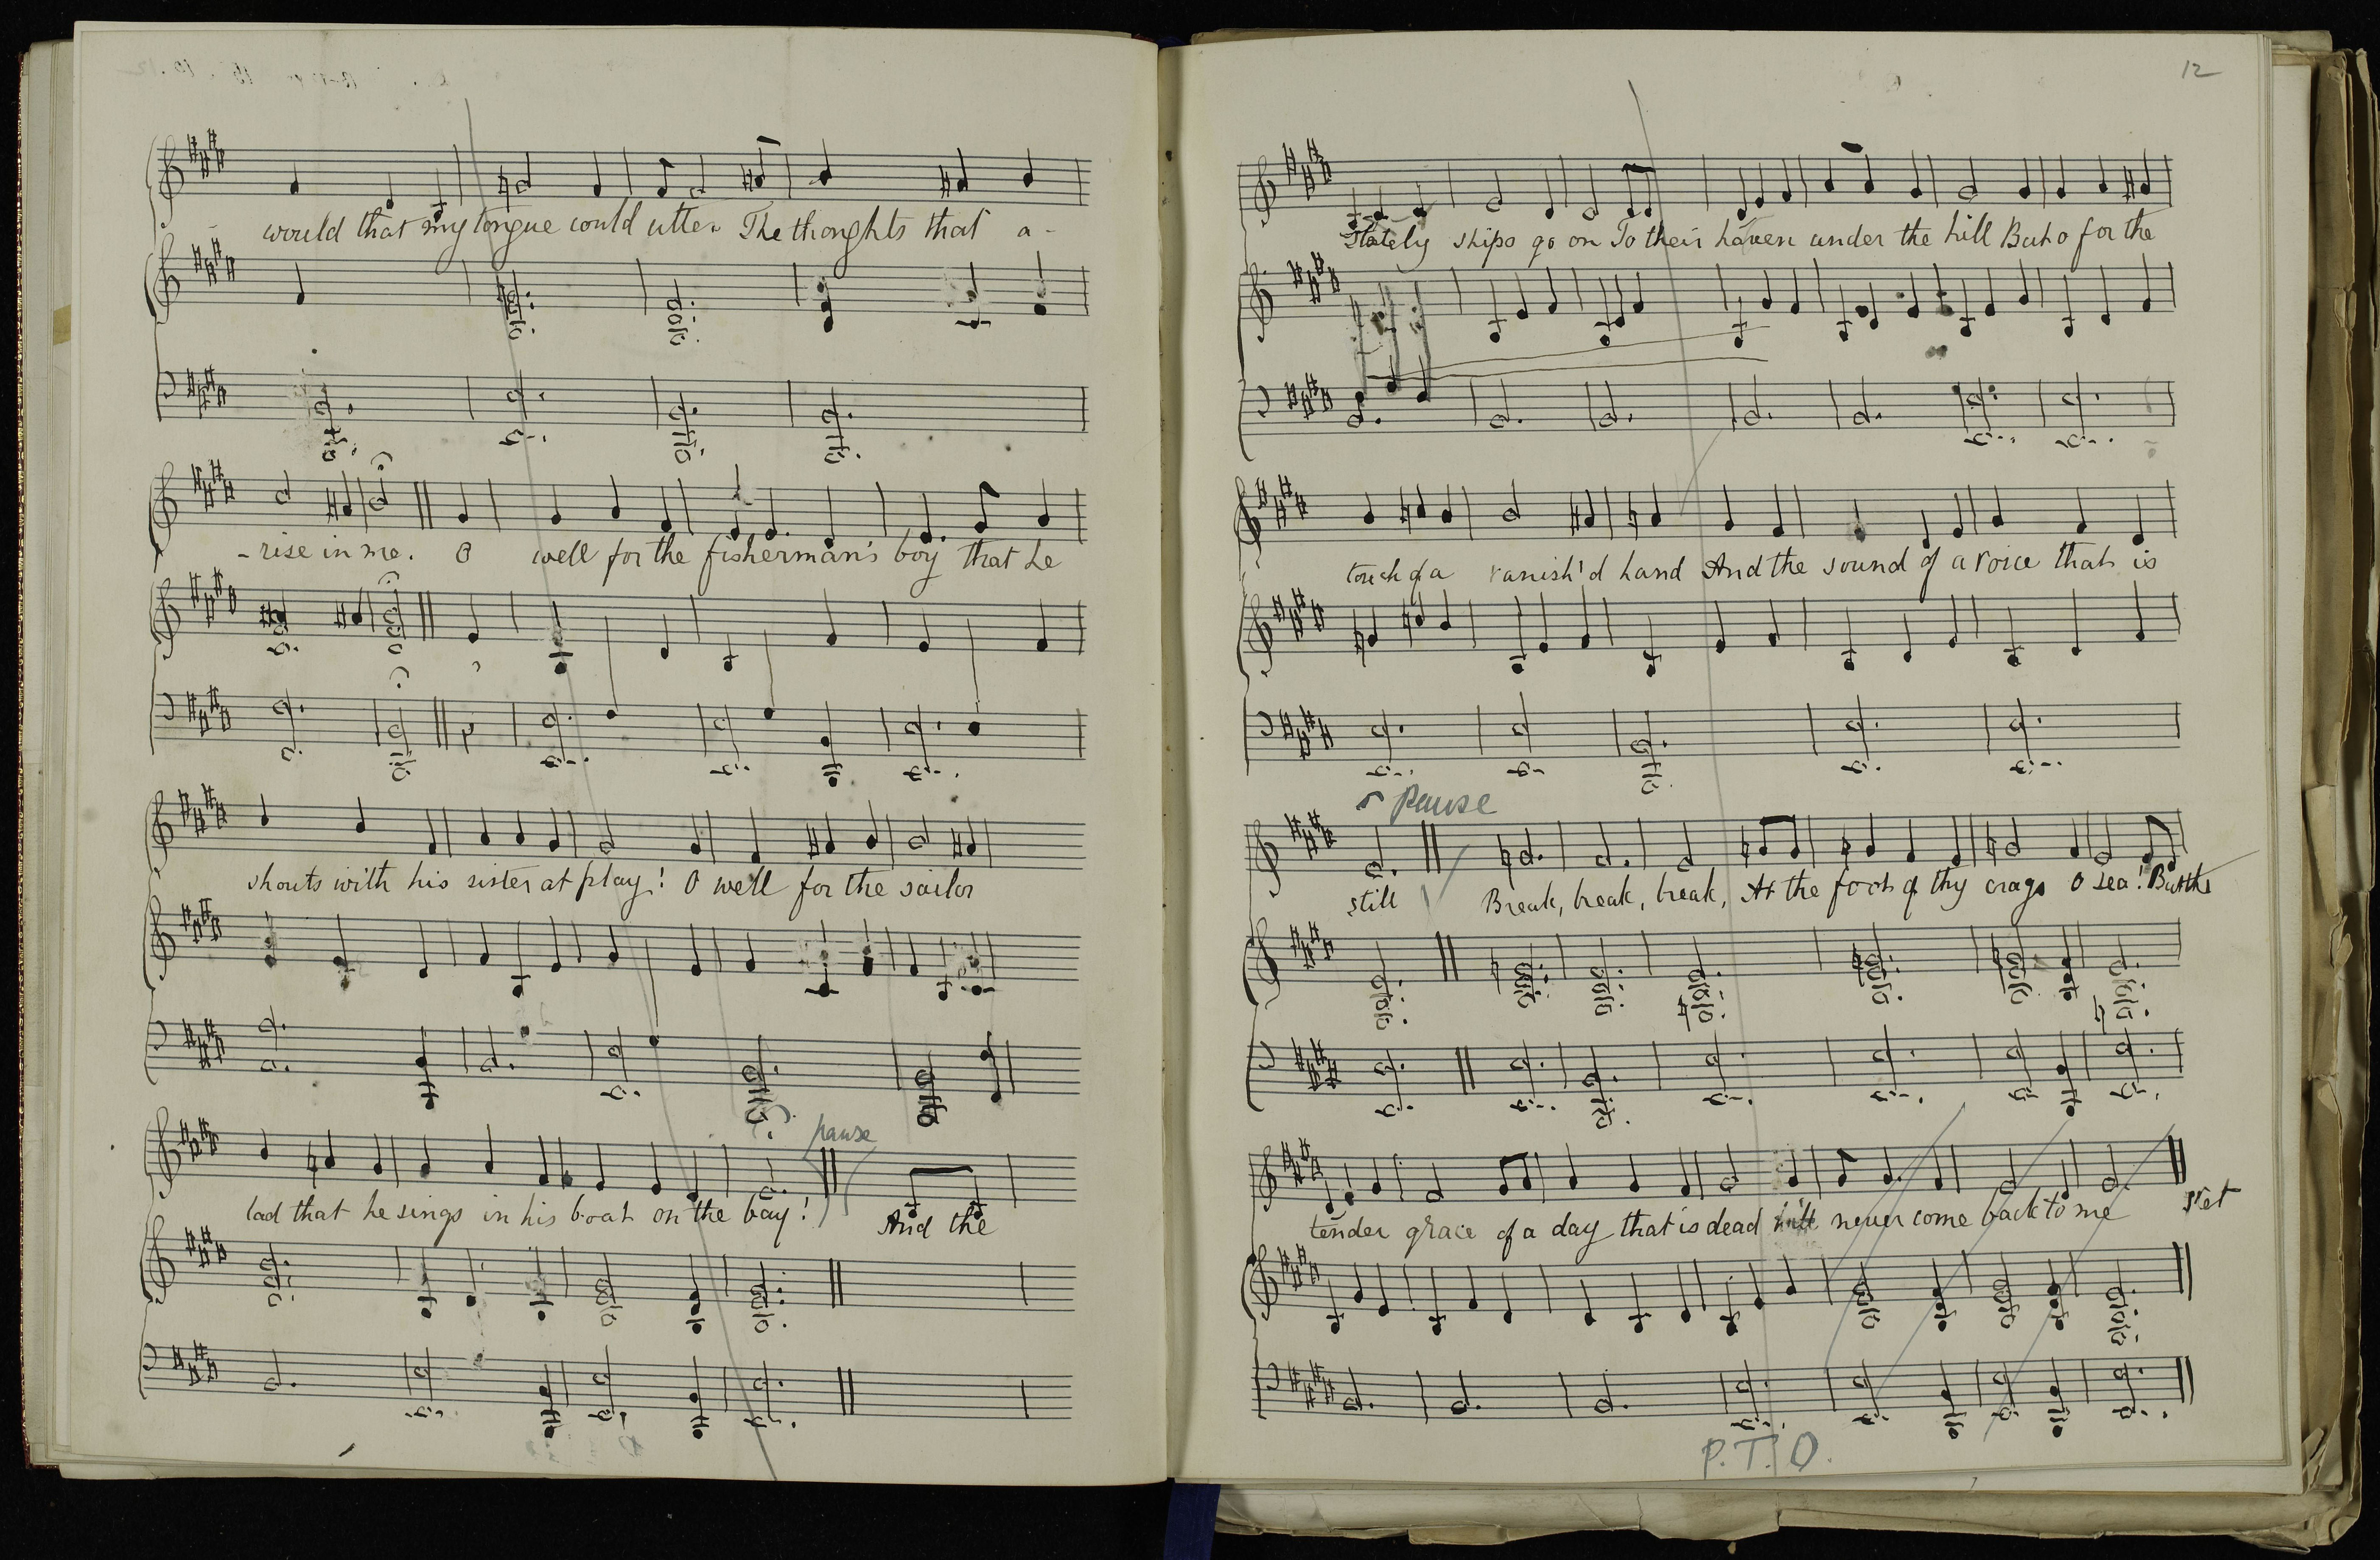 would that my tongue could utter The thoughts that a-
-rise in me. O well for the fisherman's boy that he
shouts with his sister at play! O well for the sailor
pause
lad that he sings in his boat on the bay! And the
12
Stately ships go on To their haven under the hill But o for the
touch of a vanish'd hand And the sound of a voice that is
Pause
still Break, break, break, At the foot of thy crags O sea! But the
tender grace of a day that is dead will never come back to me stet
P.T.O.